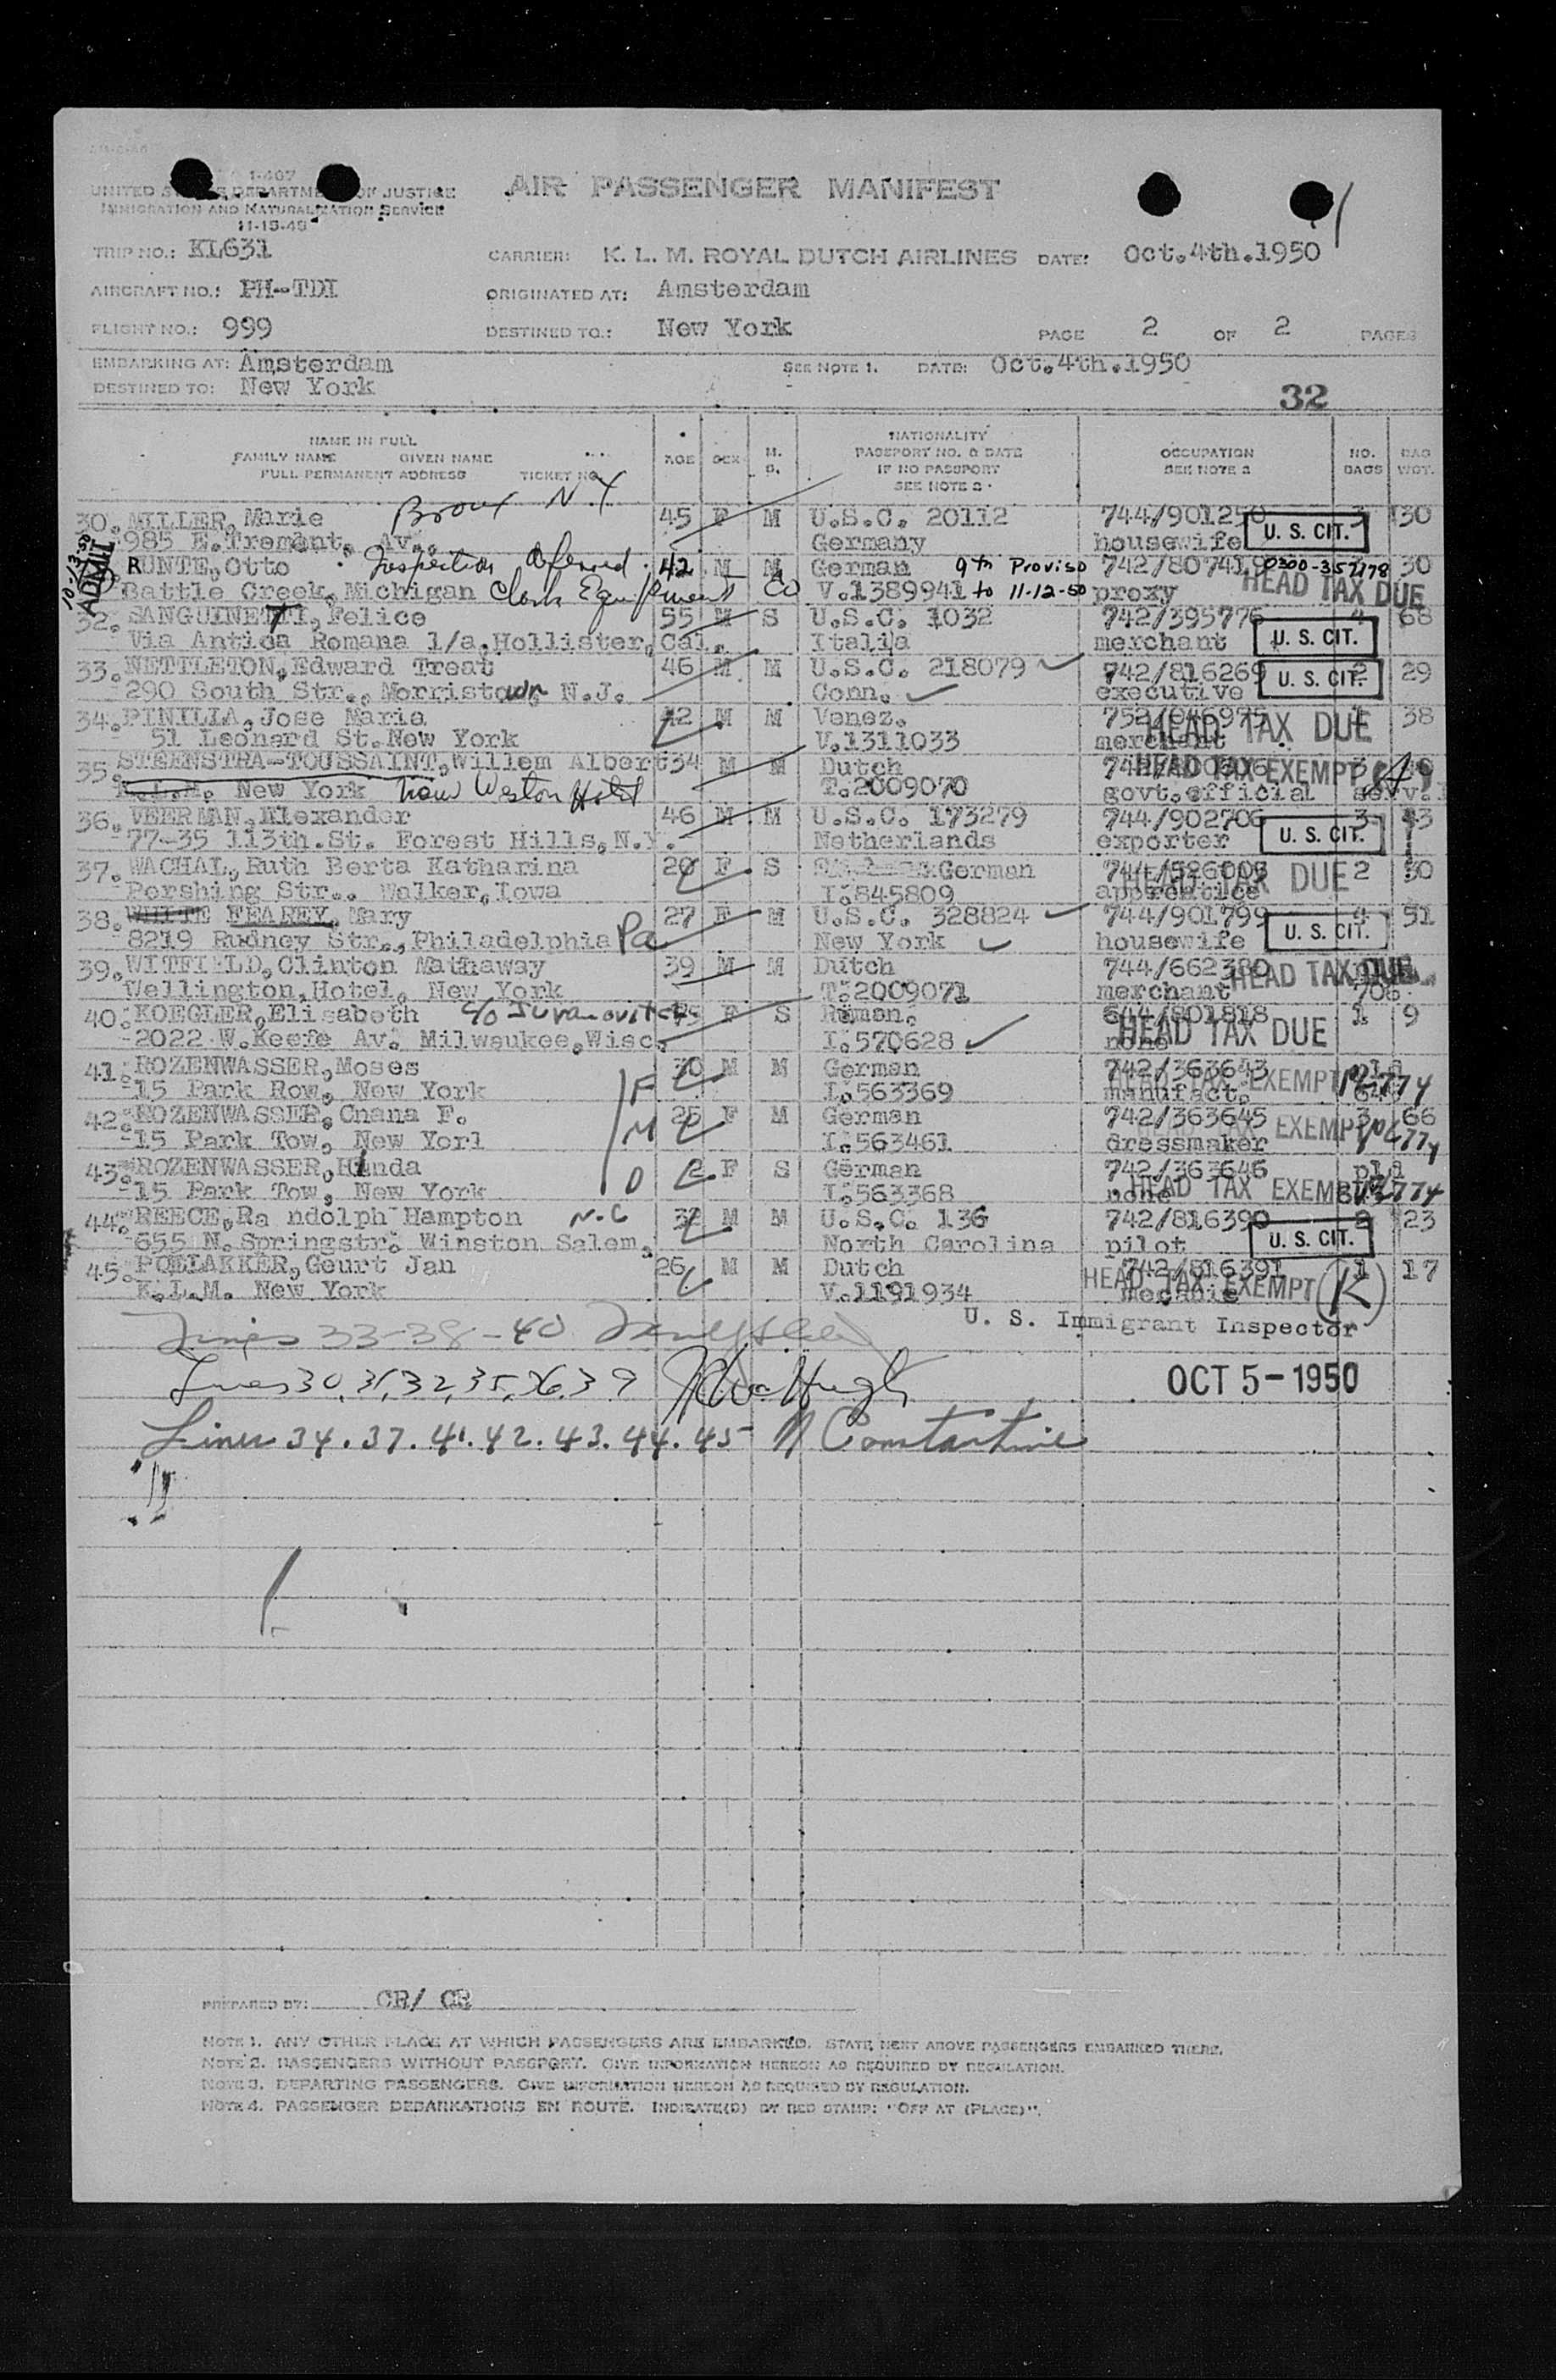 1-407
UNITED STATES DEPARTMENT OF JUSTICE
IMMIGRATION AND NATURALIZATION SERVICE
11-15-49
AIR PASSENGER MANIFEST
TRIP NO.: KL631 CARRIER: K. L. M. ROYAL DUTCH AIRLINES DATE: Oct.4th.1950
AIRCRAFT NO.: PH-TDI ORIGINATED AT: Amsterdam
FLIGHT NO.: 999 DESTINED TO.: New York PAGE 2 OF 2 PAGES
EMBARKING AT: Amsterdam SEE NOTE 1. DATE: Oct.4th.1950
DESTINED TO: New York
32
NAME IN FULL NATIONALITY
FAMILY NAME GIVEN NAME AGE SEX M. PASSPORT NO. & DATE OCCUPATION NO. BAG
FULL PERMANENT ADDRESS TICKET NO. S. IF NO PASSPORT SEE NOTE 2 BAGS WGT.
SEE NOTE 2
30. MILLER, Marie Bronx N Y 45 F M U.S.C. 20112 744/901250 3 30
985 E.Tremont, Av., Germany housewife U. S. CIT.
10-13-50 ADMIT
RUNTE, Otto Inspection deferred. 42 M M German 9th Proviso 742/807419 0300-357178 30
Battle Creek, Michigan Clark Equipment Co V.1389941 to 11-12-50 proxy HEAD TAX DUE
32. SANGUINETTI, Felice 55 M S U.S.C. 1032 742/395776 4 68
Via Antica Romana 1/a, Hollister, Cal. Italia merchant U. S. CIT.
33. NETTLETON, Edward Treat 46 M M U.S.C. 218079 742/816269 2 29
290 South Str., Morristown N.J. Conn. executive U. S. CIT.
34. PINILLA, Jose Maria 42 M M Venez. 752/046975 1 38
51 Leonard St. New York V.1311033 merchant HEAD TAX DUE
35. STEENSTRA-TOUSSAINT, Willem Albert 34 M M Dutch HEAD TAX EXEMPT
K.L.M. New York New Weston Hotel T.2009070 govt.official serv.
36. VEERMAN, Alexander 46 M M U.S.C. 173279 744/902706 3 43
77-35 113th.St. Forest Hills, N.Y. Netherlands exporter U. S. CIT.
37. WACHAL, Ruth Berta Katharina 20 F S German 2 30
Pershing Str.. Walker, Iowa I.845809 apprentice HEAD TAX DUE
38. WHITE FEAREY, Mary 27 F M U.S.C. 328824 744/901799 4 51
8219 Rudney Str., Philadelphia Pa New York housewife U. S. CIT.
39. WITFIELD, Clinton Mathaway 39 M M Dutch 744/662380 HEAD TAX DUE
Wellington, Hotel, New York T.2009071 merchant 708
40. KOEGLER, Elisabeth c/o F S Roman. 644/801818 1 9
2022 W.Keefe Av. Milwaukee, Wisc. I.570628 none HEAD TAX DUE
41. ROZENWASSER, Moses F 30 M M German 742/363643 pla
15 Park Row, New York I.563369 manufact. HEAD TAX EXEMPT
42. ROZENWASSER, Chana F. M 25 F M German 742/363645 3 66
15 Park Tow, New Yorl I.563461 dressmaker HEAD TAX EXEMPT
43. ROZENWASSER, Hinda D 2 F S German 742/363646 pla
15 Park Tow, New York I.563368 none HEAD TAX EXEMPT
44. REECE, Ra ndolph Hampton N.C 32 M M U.S.C. 136 742/816390 2 23
655 N. Springstr. Winston Salem. North Carolina pilot U. S. CIT.
45. POELAKKER, Geurt Jan 26 M M Dutch 742/816391 1 17
K.L.M. New York V.1191934 mecanic HEAD TAX EXEMPT (K)
U. S. Immigrant Inspector
Lines 33-38-40
Lines 30, 31, 32, 35, 36, 39
OCT 5-1950
Lines 34. 37. 41. 42. 43. 44. 45 Constantine
PREPARED BY: CR/ CR
NOTE 1. ANY OTHER PLACE AT WHICH PASSENGERS ARE EMBARKED. STATE NEXT ABOVE PASSENGERS EMBARKED THERE.
NOTE 2. PASSENGERS WITHOUT PASSPORT. GIVE INFORMATION HEREON AS REQUIRED BY REGULATION.
NOTE 3. DEPARTING PASSENGERS. GIVE INFORMATION HEREON AS REQUIRED BY REGULATION.
NOTE 4. PASSENGER DEBARKATIONS EN ROUTE. INDICATE(D) BY RED STAMP: "OFF AT (PLACE)".